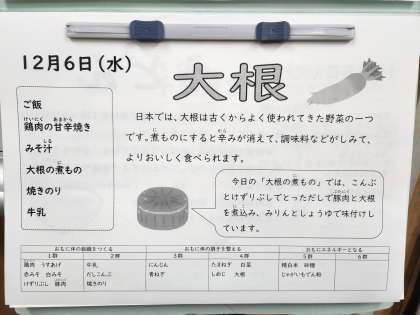 12月6日(水)
大根
ご飯
鶏肉の甘辛焼き
みそ汁
大根の煮もの
焼きのり
牛乳
日本では、大根は古くからよく使われてきた野菜の一つ
です。煮ものにすると辛みが消えて、調味料などがしみて、
よりおいしく食べられます。
今日の「大根の煮もの」では、こんぶ
とけずりぶしでとっただしで豚肉と大根
を煮込み、みりんとしょうゆで味付けし
ています。
おもに体の組織をつくる おもに体の調子を整える おもにエネルギーとなる
1群 2群 3群 4群 5群 6群
鶏肉 うすあげ 牛乳 にんじん たまねぎ 白菜 精白米 砂糖
赤みそ 白みそ だしこんぶ 青ねぎ しめじ 大根 じゃがいもでん粉
けずりぶし 豚肉 焼きのり